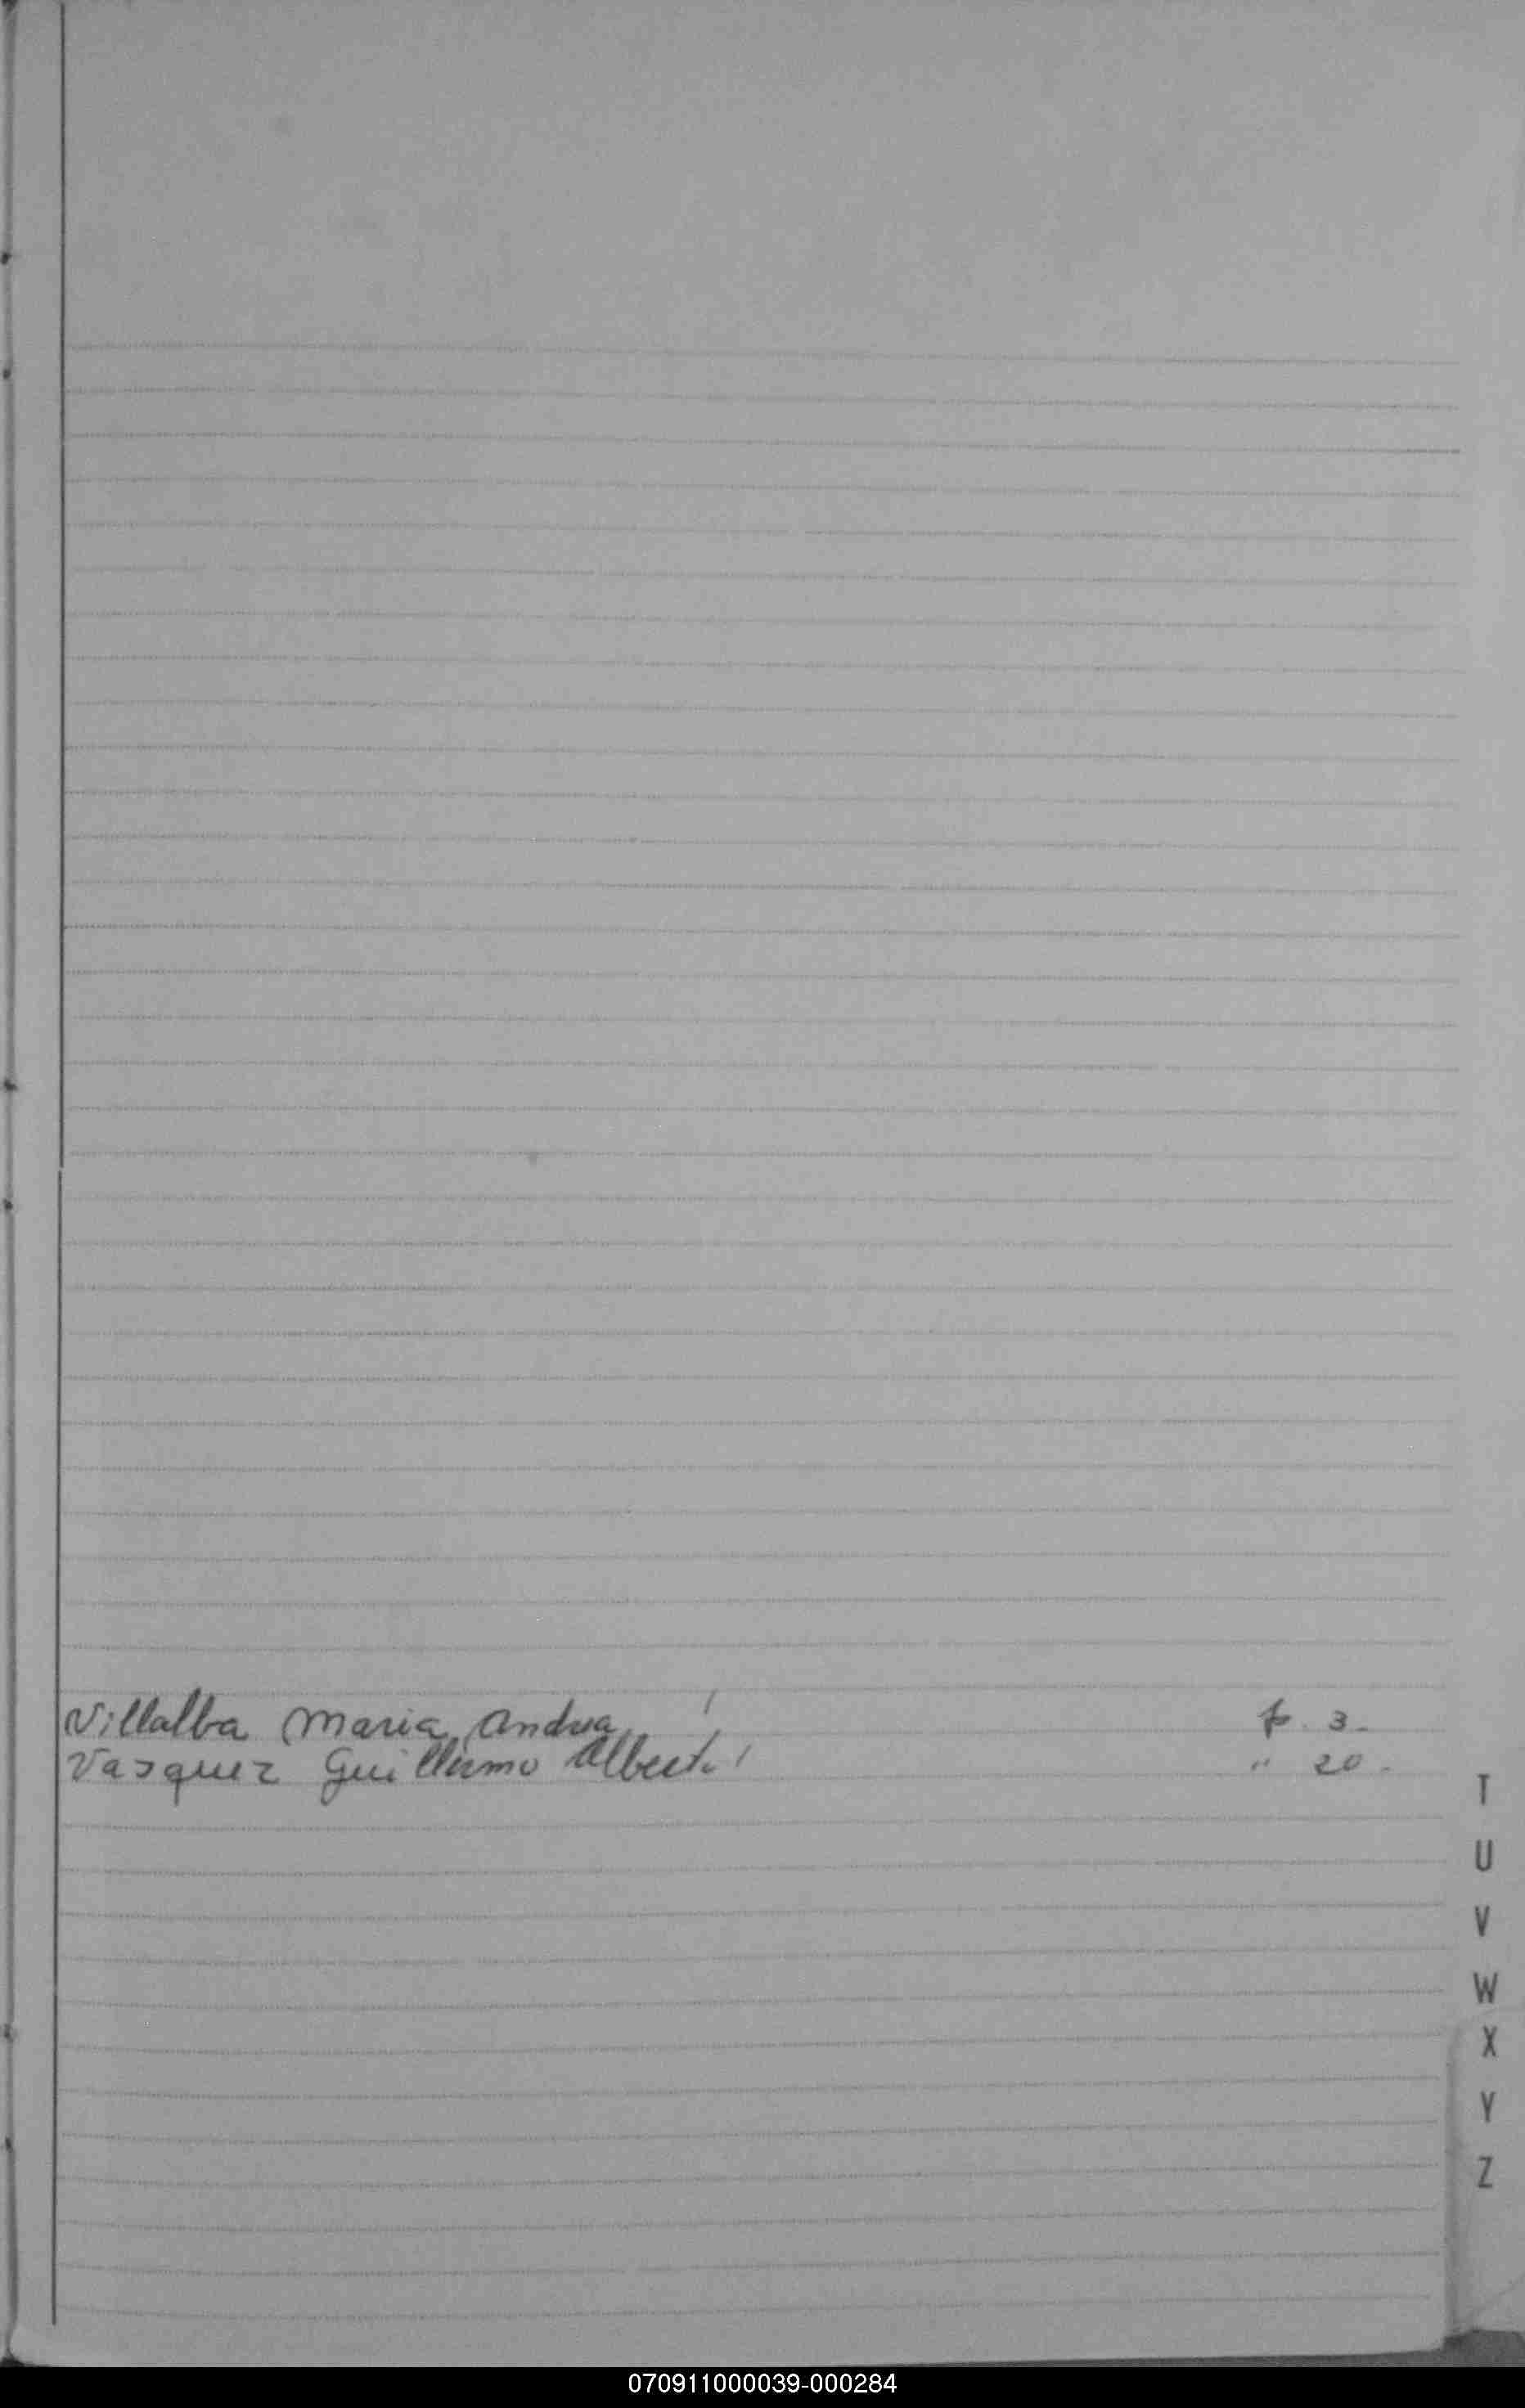 Villalba Maria Andrea f. 3-
Vasquez Guillermo Alberto " 20-
T
U
V
W
X
Y
Z
070911000039-000284